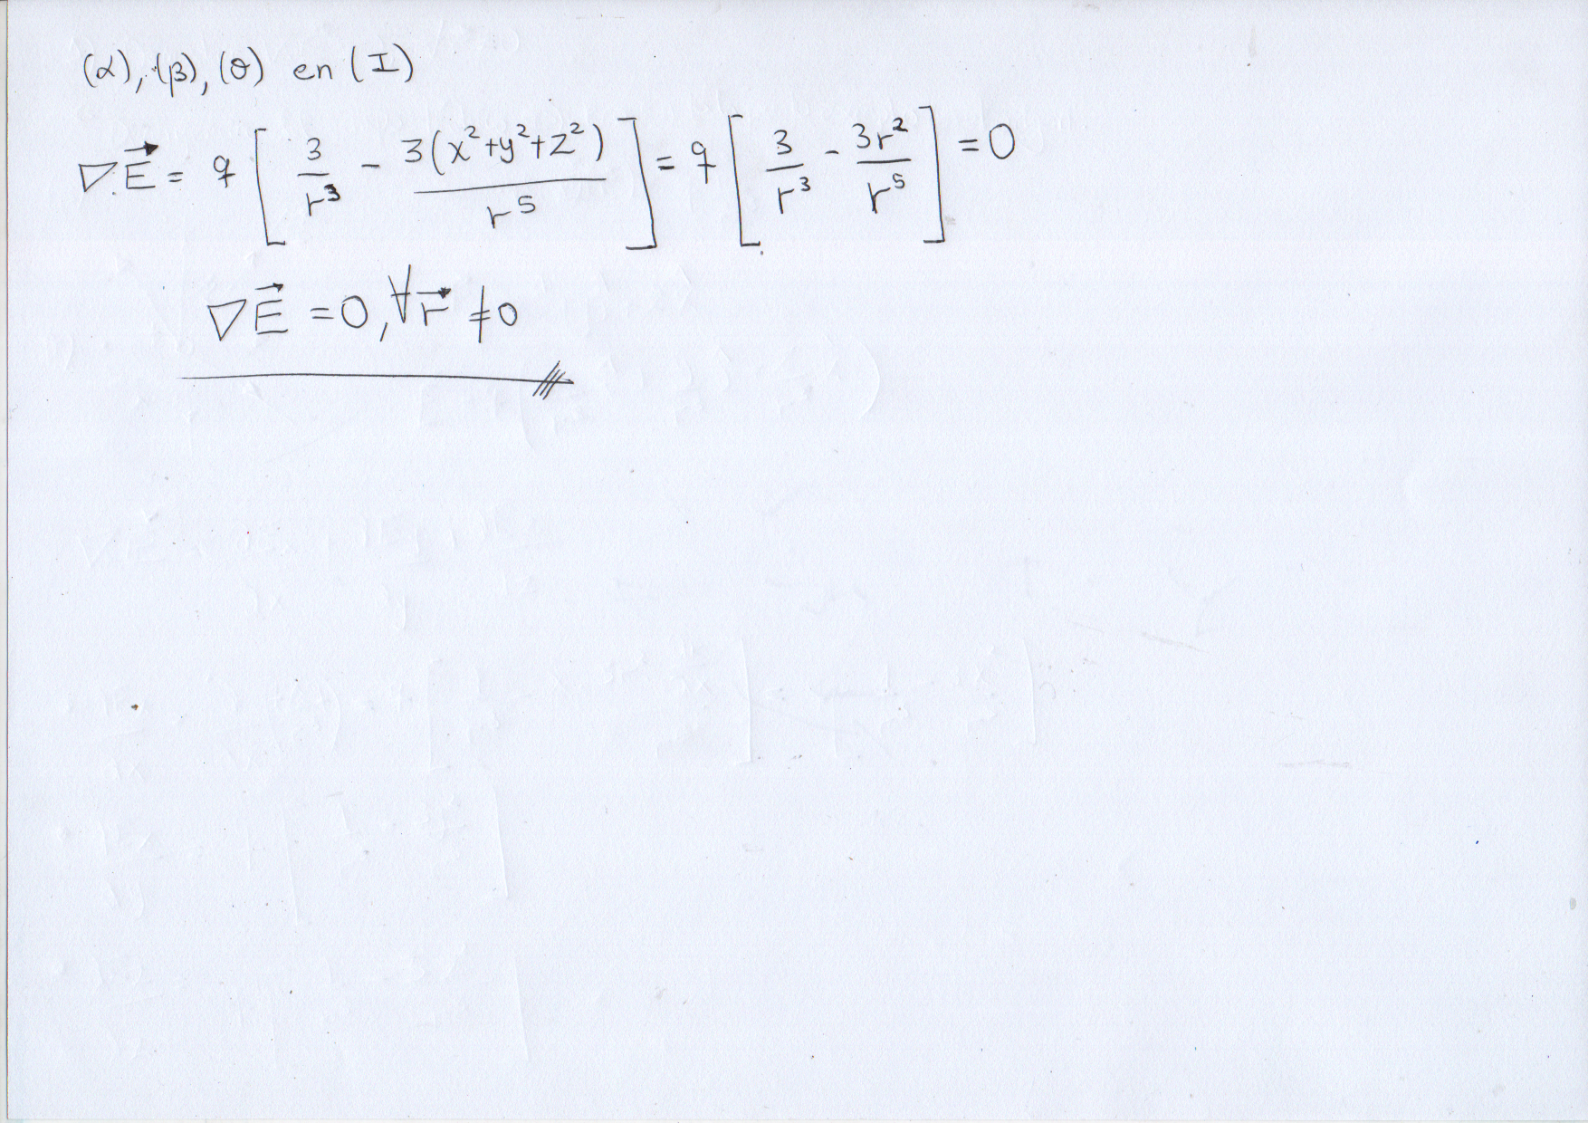 (α), (β), (θ) en (I)
∇.E⃗ = q [ 3/r³ - 3(x²+y²+z²)/r⁵ ] = q [ 3/r³ - 3r²/r⁵ ] = 0
∇E⃗ = 0, ∀r⃗ ≠ 0